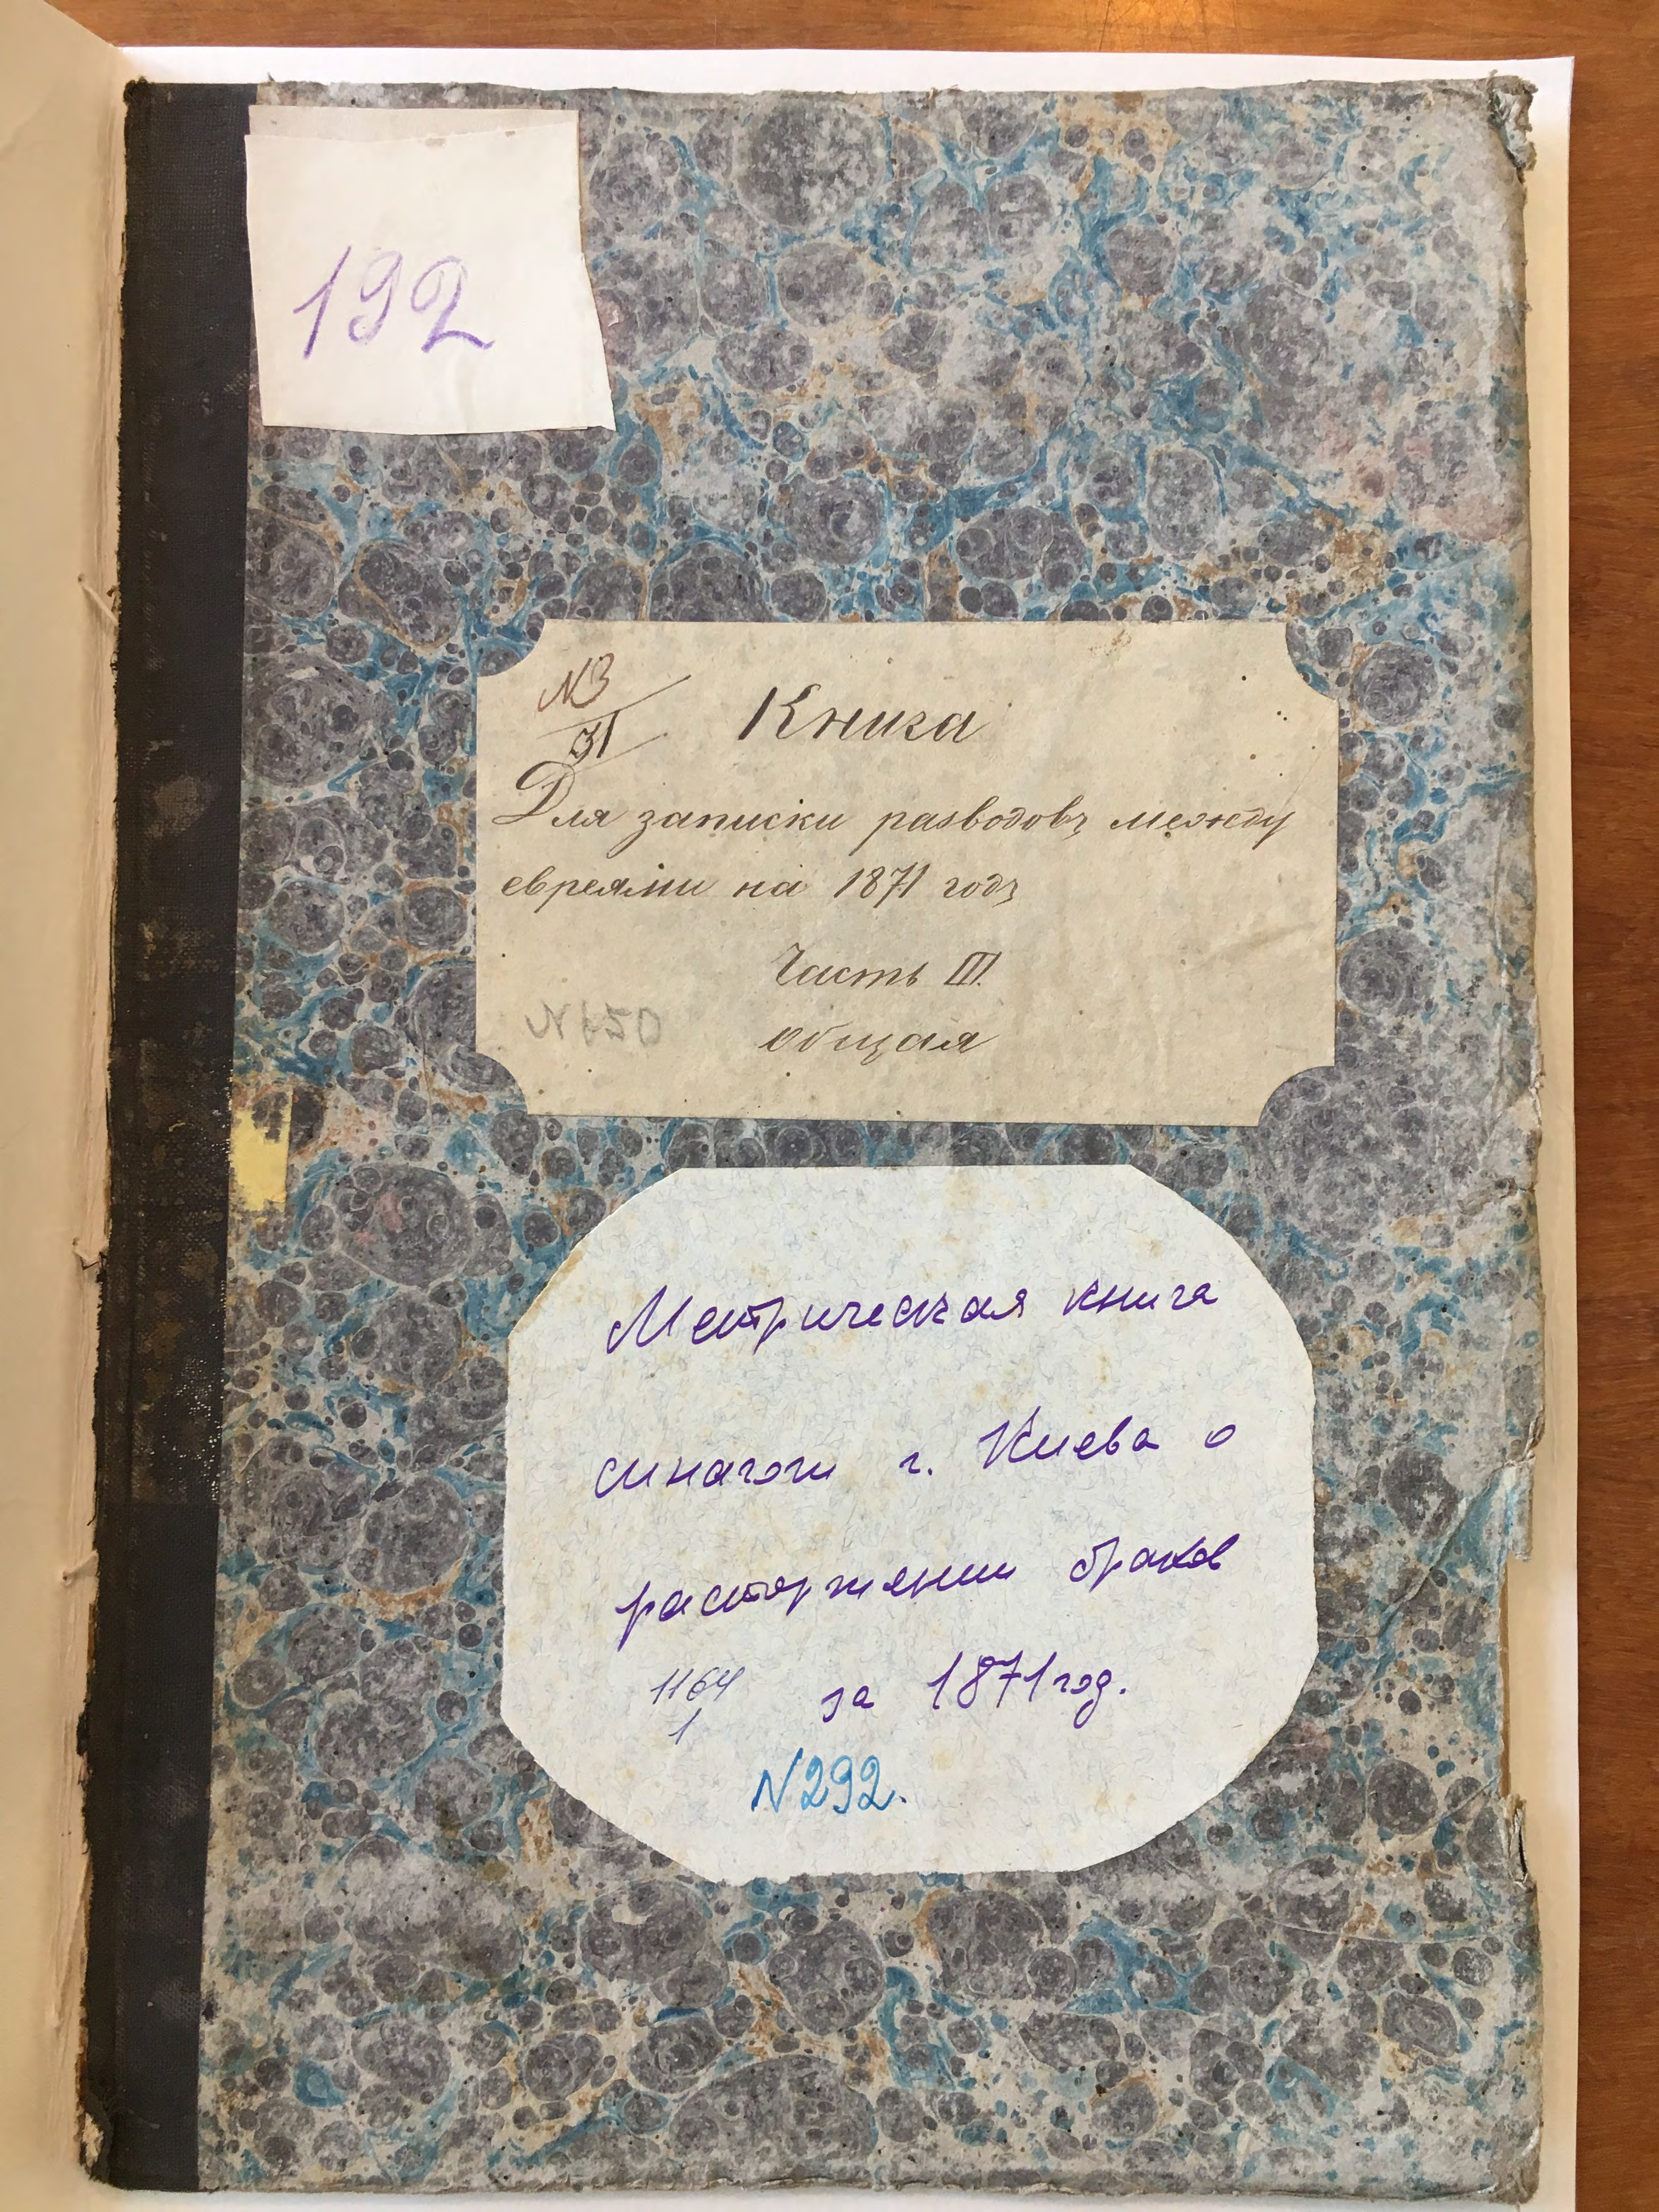 192
№3
31
Книга
Для записки разводовъ между
евреями на 1871 годъ
Часть III.
общая
N650
Метрическая книга
синагоги г. Киева о
расторжении браков
1164
1
за 1871 год.
N292.